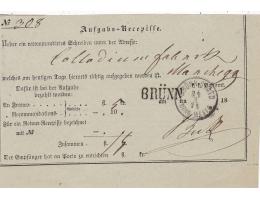 № 308
Aufgabs-Recepisse.
Ueber ein recommandirtes Schreiben unter der Adresse:
Collodiumfabrik
welches am heutigen Tage hieramt richtig aufgegeben worden ist.
Marchegg
Dafür ist bei der Aufgabe
bezahlt worden:
An Franco fl. 5 kr.
Recommandations- „ 10 „
BRÜNN am 18
Für ein Retour-Recepisse bezeichnet
mit №
Zusammen
Der Empfänger hat an Porto zu entrichten fl. kr.